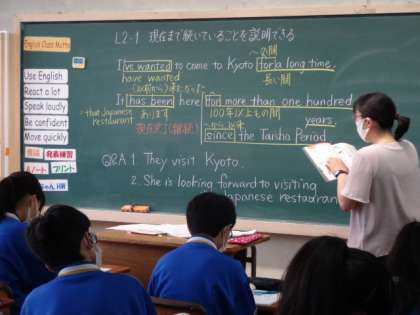 English Class Motto
Use English
React a lot
Speak loudly
Be confident
Move quickly
発表練習
Aノート
プリント
HW
L2-1 現在まで続いていることを説明できる
〜の間
I've wanted to come to Kyoto for a long time.
have wanted
長い間
It has been here for more than one hundred years.
that Japanese restaurant
あります
100年以上もの間
現在完了(継続)
since the Taisho Period
Q&A 1 They visit Kyoto.
2. She is looking forward to visiting
Japanese restaurant